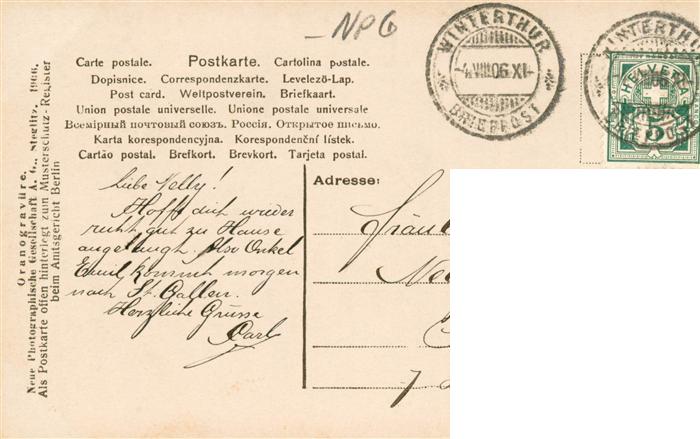 NPG
Carte postale. Postkarte. Cartolina postale.
Dopisnice. Correspondenzkarte. Levelező-Lap.
Post card. Weltpostverein. Briefkaart.
Union postale universelle. Unione postale universale
Всемірный почтовый союзъ. Россія. Открытое письмо.
Karta korespondencyjna. Korespondenční lístek.
Cartão postal. Brefkort. Brevkort. Tarjeta postal.
WINTERTHUR
4.VIII.06.XI
BRIEFPOST
WINTERTHUR
HELVETIA
5
Oranogravüre.
Neue Photographische Gesellschaft A. G., Steglitz. 1906.
Als Postkarte offen hinterlegt zum Musterschutz-Register
beim Amtsgericht Berlin
Liebe Nelly!
Hofft dich wieder
recht gut zu Hause
angelangt. Also Onkel
Emil kommt morgen
nach St. Gallen.
Herzliche Grüsse
Carl
Adresse:
Fräul
7